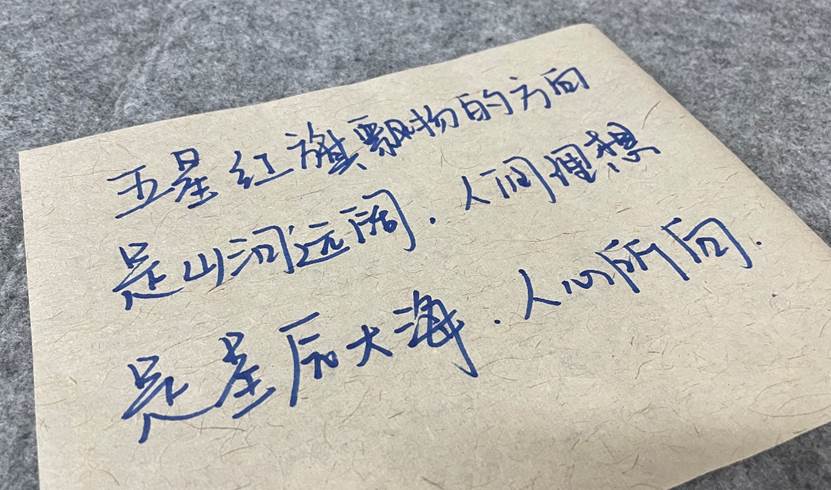 五星红旗飘扬的方向
是山河远阔.人间理想
是星辰大海.人心所向.